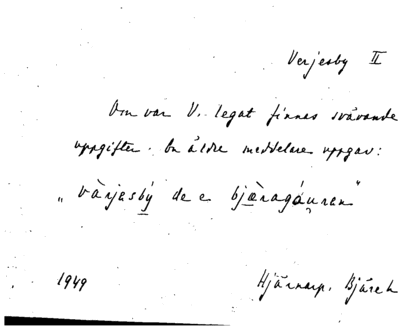 Verjesby II
Om var V. legat finnes svävande
uppgifter. En äldre meddelare uppgav:
„värjesbý de e bjæragáuren"
1949
Hjärnarp. Bjäre h